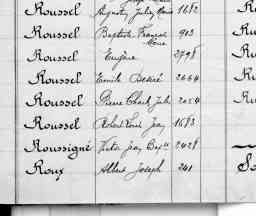 Roussel Auguste Jules Marie 1682
Roussel Baptiste François 903
Marie
Roussel Eugène 2798
Roussel Emile Désiré 2664
Roussel Pierre Charl. Jules 2054
Roussel Robert Louis Jean 1683
Roussigné Victor Jean Bapte 2428
Roux Albert Joseph 241